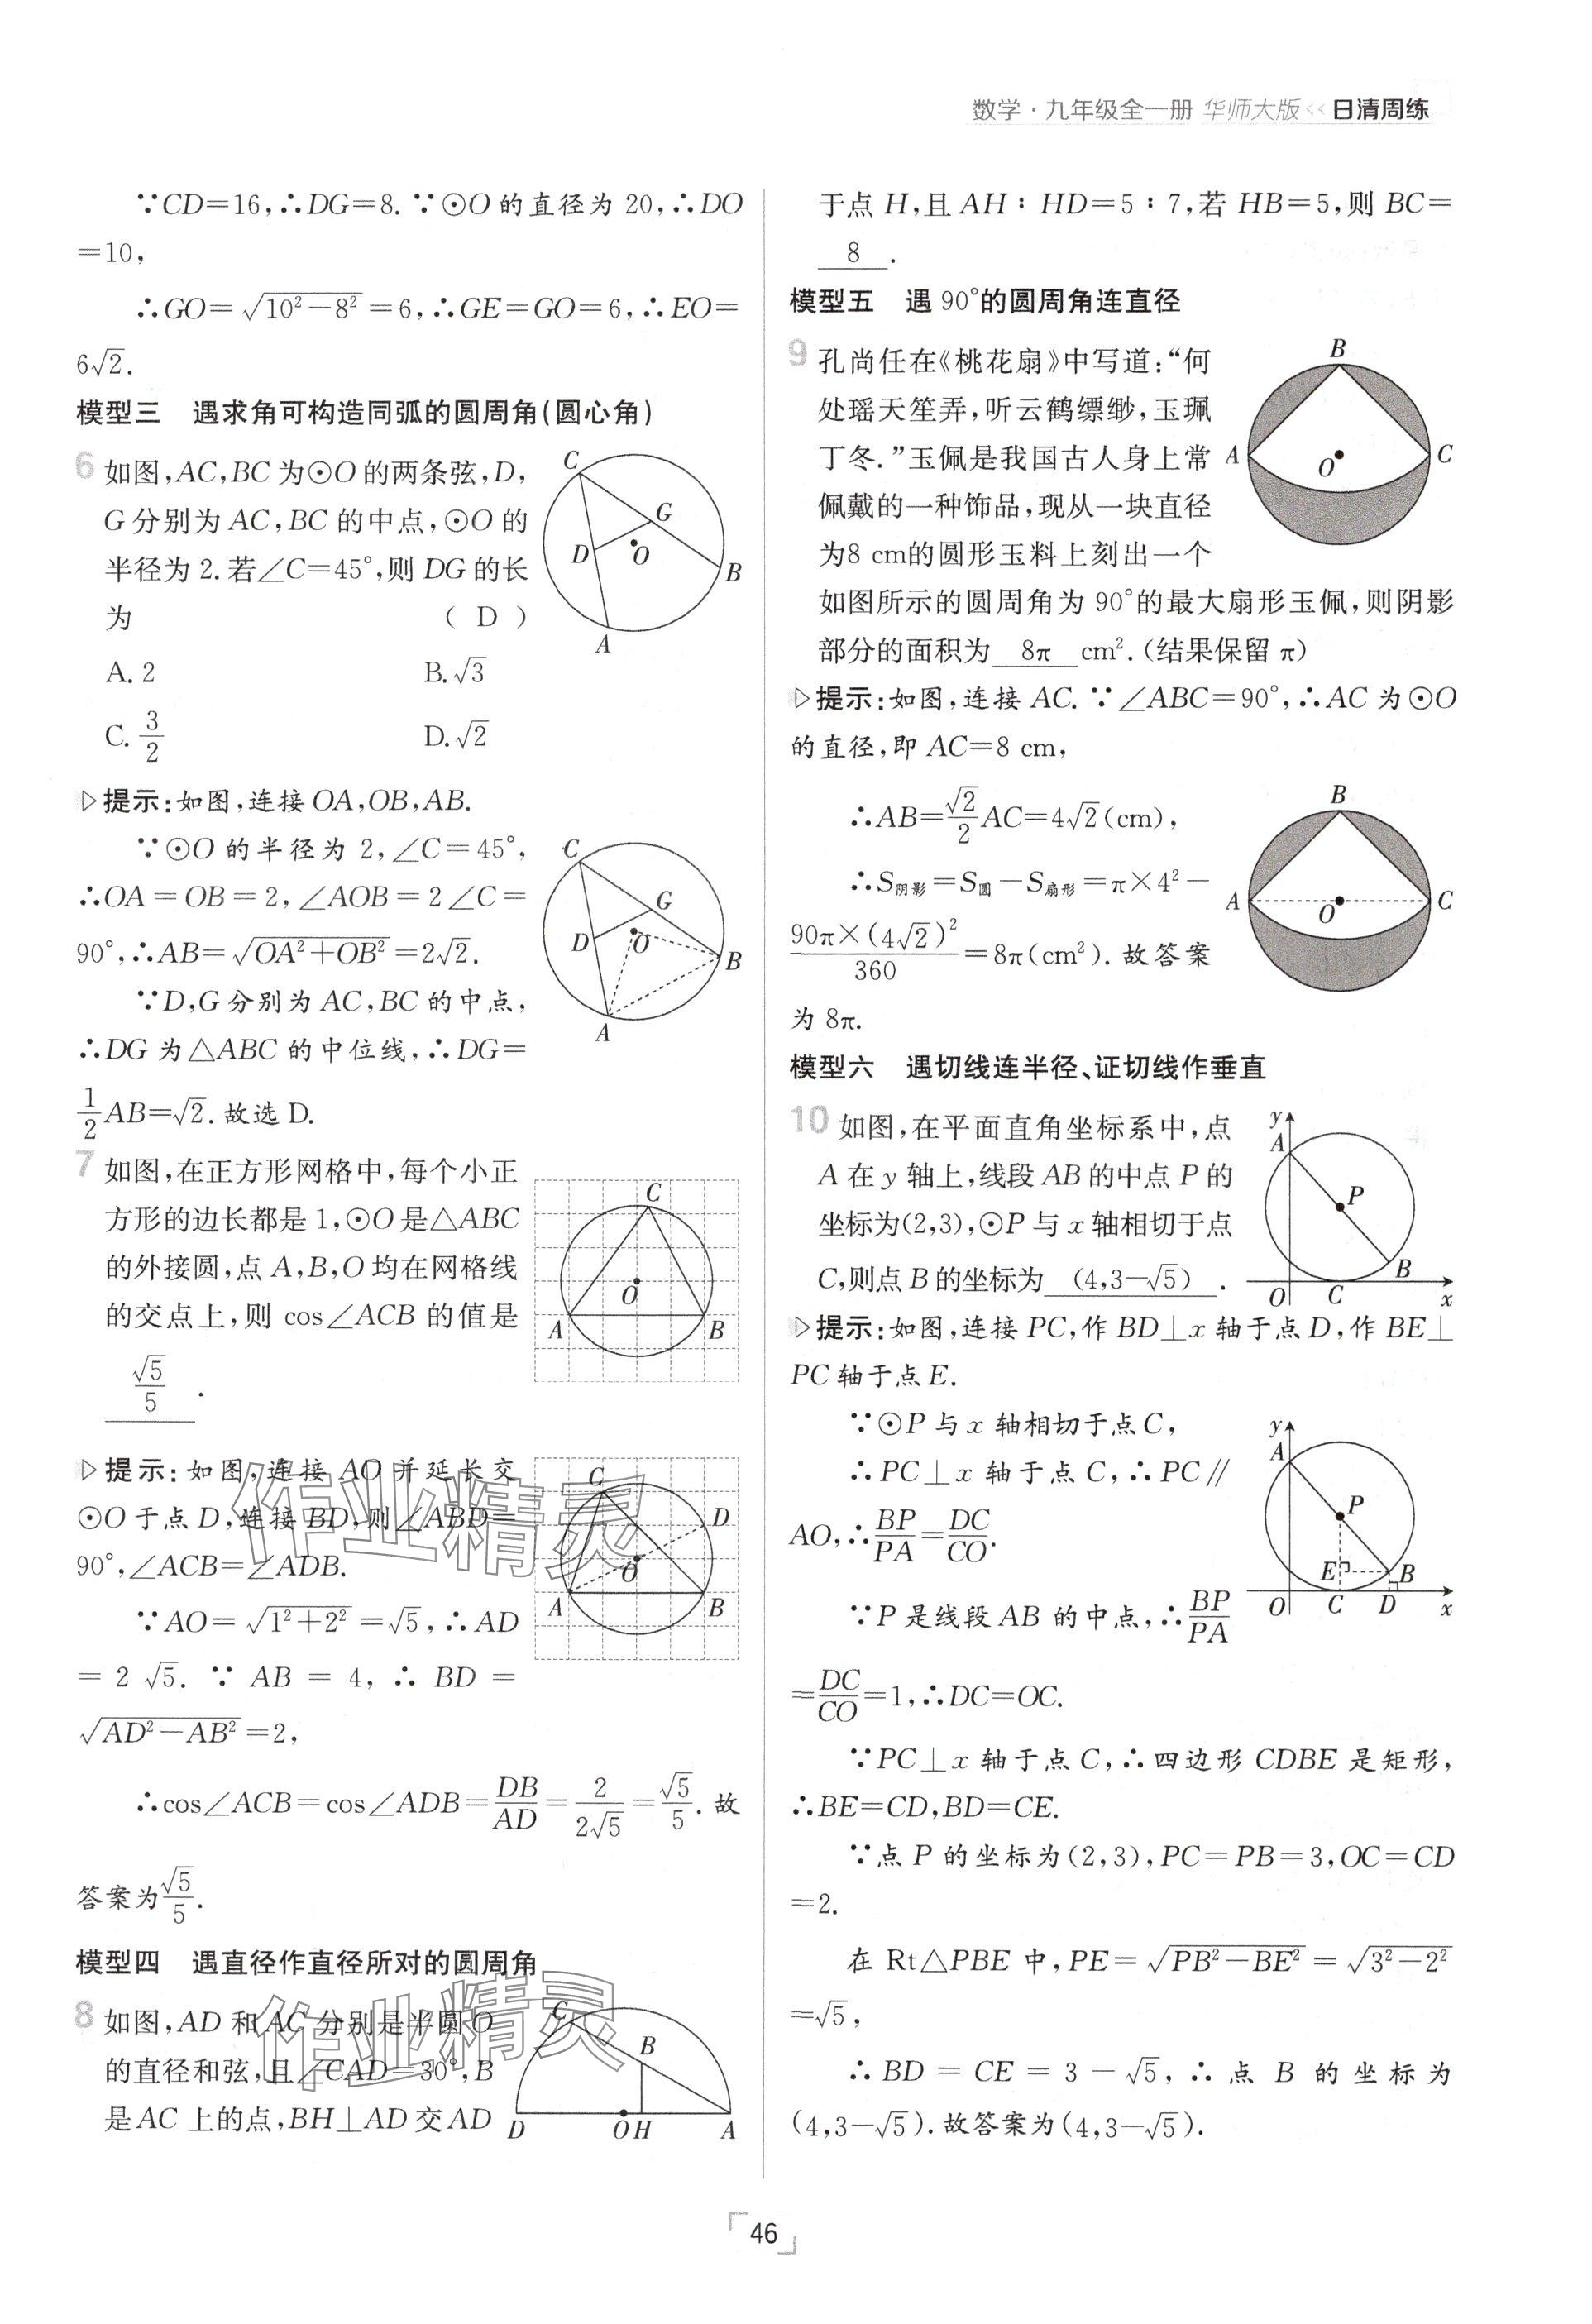 数学·九年级全一册 华师大版<<日清周练
∵CD=16,∴DG=8.∵⊙O的直径为20,∴DO
=10,
∴GO=√(10²-8²)=6,∴GE=GO=6,∴EO=
6√2.
模型三 遇求角可构造同弧的圆周角(圆心角)
6 如图,AC,BC为⊙O的两条弦,D,
G分别为AC,BC的中点,⊙O的
半径为2.若∠C=45°,则DG的长
为 ( D )
A.2 B.√3
C.3/2 D.√2
C
G
D
O
B
A
▷提示:如图,连接OA,OB,AB.
∵⊙O的半径为2,∠C=45°,
∴OA=OB=2,∠AOB=2∠C=
90°,∴AB=√(OA²+OB²)=2√2.
∵D,G分别为AC,BC的中点,
∴DG为△ABC的中位线,∴DG=
1/2AB=√2.故选D.
C
G
D
O
B
A
7 如图,在正方形网格中,每个小正
方形的边长都是1,⊙O是△ABC
的外接圆,点A,B,O均在网格线
的交点上,则cos∠ACB的值是
√5/5.
C
O
A B
▷提示:如图,连接AO并延长交
⊙O于点D,连接BD,则∠ABD=
90°,∠ACB=∠ADB.
∵AO=√(1²+2²)=√5,∴AD
=2√5.∵AB=4,∴BD=
√(AD²-AB²)=2,
∴cos∠ACB=cos∠ADB=DB/AD=2/2√5=√5/5.故
答案为√5/5.
C
D
O
A B
作业精灵
模型四 遇直径作直径所对的圆周角
8 如图,AD和AC分别是半圆O
的直径和弦,且∠CAD=30°,B
是AC上的点,BH⊥AD交AD
C
B
D O H A
作业精灵
于点H,且AH∶HD=5∶7,若HB=5,则BC=
8.
模型五 遇90°的圆周角连直径
9 孔尚任在《桃花扇》中写道:“何
处瑶天笙弄,听云鹤缥缈,玉珮
丁冬.”玉佩是我国古人身上常
佩戴的一种饰品,现从一块直径
为8 cm的圆形玉料上刻出一个
如图所示的圆周角为90°的最大扇形玉佩,则阴影
部分的面积为 8π cm².(结果保留π)
B
A O C
▷提示:如图,连接AC.∵∠ABC=90°,∴AC为⊙O
的直径,即AC=8 cm,
∴AB=√2/2AC=4√2(cm),
∴S阴影=S圆-S扇形=π×4²-
90π×(4√2)²/360=8π(cm²).故答案
为8π.
B
A O C
模型六 遇切线连半径、证切线作垂直
10 如图,在平面直角坐标系中,点
A在y轴上,线段AB的中点P的
坐标为(2,3),⊙P与x轴相切于点
C,则点B的坐标为 (4,3-√5) .
y
A
P
B
O C x
▷提示:如图,连接PC,作BD⊥x轴于点D,作BE⊥
PC轴于点E.
∵⊙P与x轴相切于点C,
∴PC⊥x轴于点C,∴PC∥
AO,∴BP/PA=DC/CO.
∵P是线段AB的中点,∴BP/PA
=DC/CO=1,∴DC=OC.
y
A
P
E B
O C D x
∵PC⊥x轴于点C,∴四边形CDBE是矩形,
∴BE=CD,BD=CE.
∵点P的坐标为(2,3),PC=PB=3,OC=CD
=2.
在Rt△PBE中,PE=√(PB²-BE²)=√(3²-2²)
=√5,
∴BD=CE=3-√5,∴点B的坐标为
(4,3-√5).故答案为(4,3-√5).
46